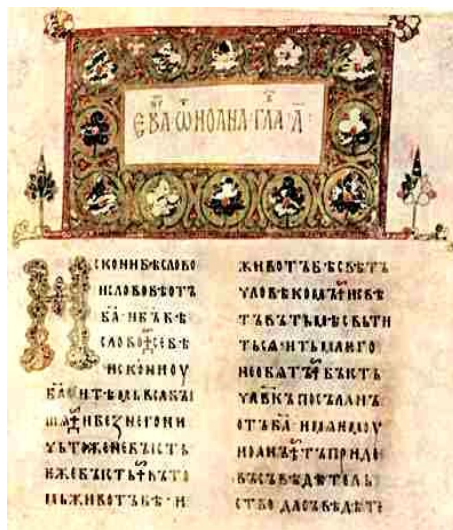 ЕВА Ѡ ИОАНА ГЛА А҃·
ИСКОНИБѢСЛОВО
ИСЛОВОБѢОТЪ
Б҃А·ИБ҃ЪБѢ
СЛОВО·СЕБѢ
ИСКОНИОУ
Б҃А·ИТѢМЬВЬСѦБЫ
ШѦ·ИБЕЗНЕГОНИ
ЧЬТОЖЕНЕБЫСТЬ
ЕЖЕБЫСТЬ·ВЪТО
МЬЖИВОТЪБѢ·И
ЖИВОТЪБѢСВѢТЪ
ЧЛОВѢКОМЪ·ИСВѢ
ТЪВЪТЬМѢСВЬТИ
ТЬСѦ·ИТЬМАѤГО
НЕОБѦТЪ·БЫСТЬ
ЧЛ҃ВКЪПОСЪЛАНЪ
ОТЪБ҃А·ИМѦѤМОУ
ИОАНЪ·ТЪПРИДЕ
ВЪСЪВѢДѢТЕЛЬ
СТВО·ДАСЪВѢДѢТЕ